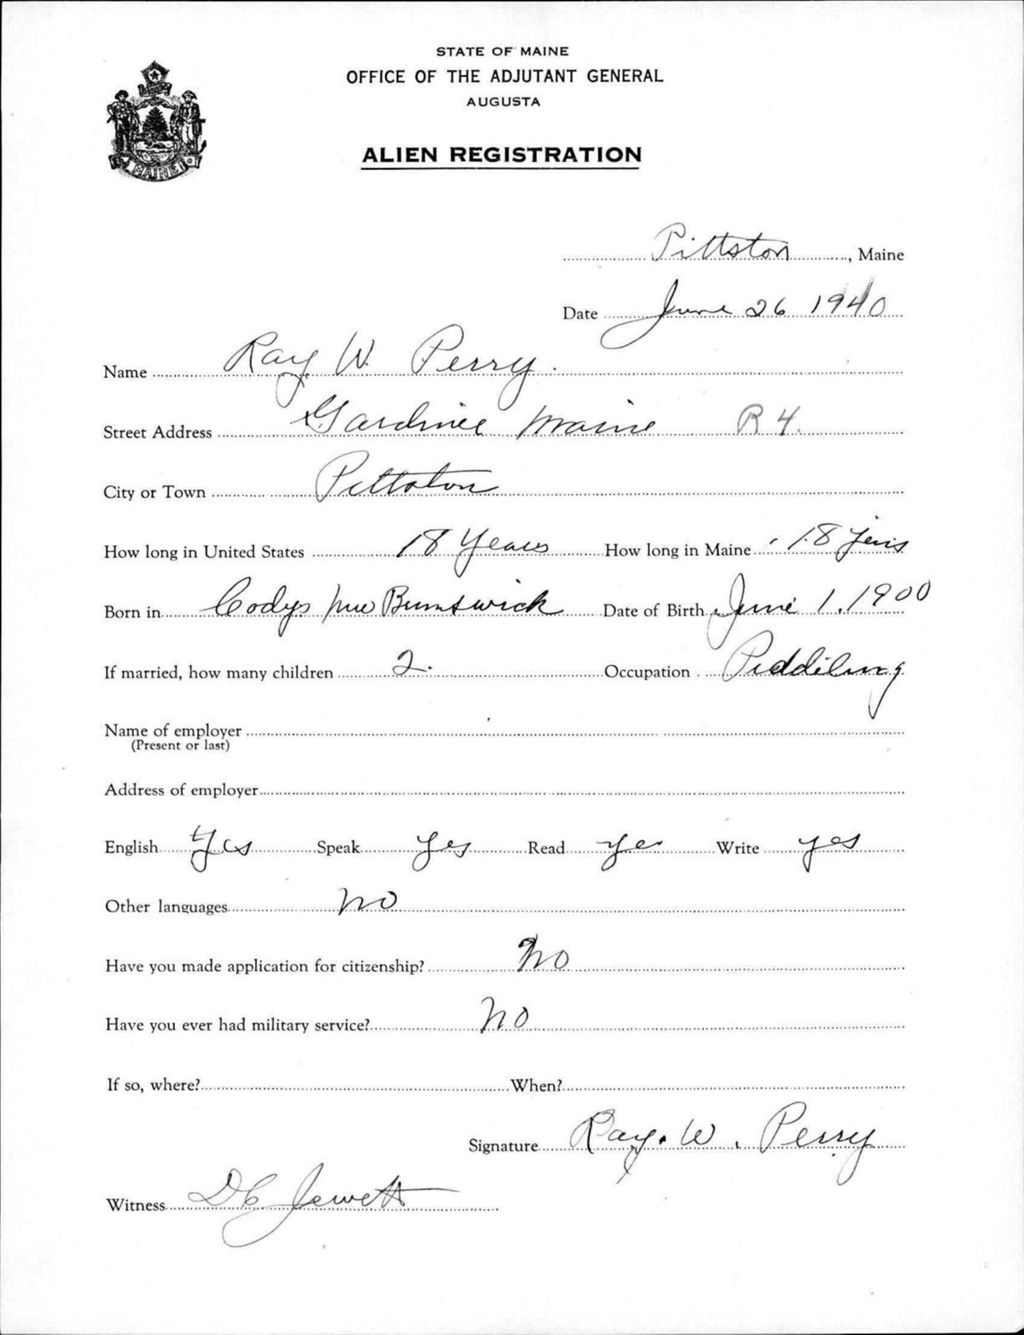 STATE OF MAINE
OFFICE OF THE ADJUTANT GENERAL
AUGUSTA
MAINE
ALIEN REGISTRATION
Pittston, Maine
Date June 26 1940
Name Ray W. Perry.
Street Address Gardiner Maine R 4.
City or Town Pittston
How long in United States 18 Years How long in Maine 18 years
Born in Codys New Brunswick Date of Birth June 1, 1900
If married, how many children 2. Occupation Peddiling
Name of employer
(Present or last)
Address of employer
English Yes Speak yes Read yes Write yes
Other languages no
Have you made application for citizenship? No
Have you ever had military service? no
If so, where? When?
Signature Ray. W. Perry
Witness D C Jewett